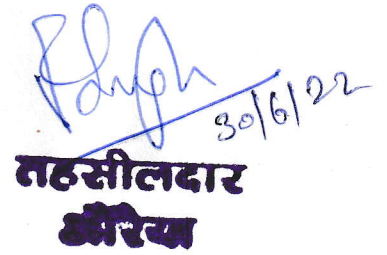 30/6/22
तहसीलदार
औरैया